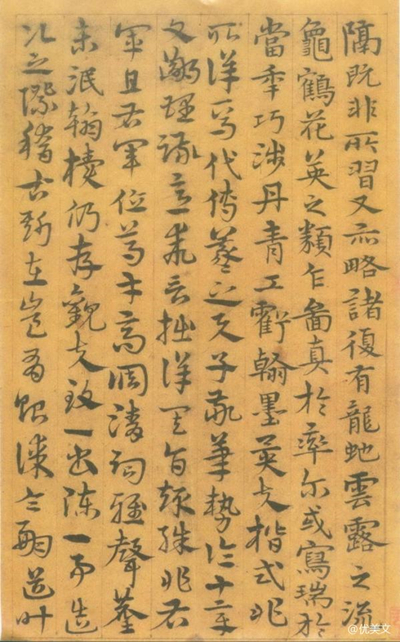 隔既非所習又亦略諸復有龍虵雲露之流
龜鶴花英之類乍圖真於率尔或寫瑞於
當年巧涉丹青工虧翰墨異夫楷式非
所詳焉代傳羲之與子敬筆勢論十章
文鄙理疎意乖言拙詳其旨趣殊非右
軍且右軍位重才高調清詞雅聲塵
未泯翰牘仍存觀夫致一書陳一事造
次之際稽古斯在豈有貽謀令嗣道叶
@优美文